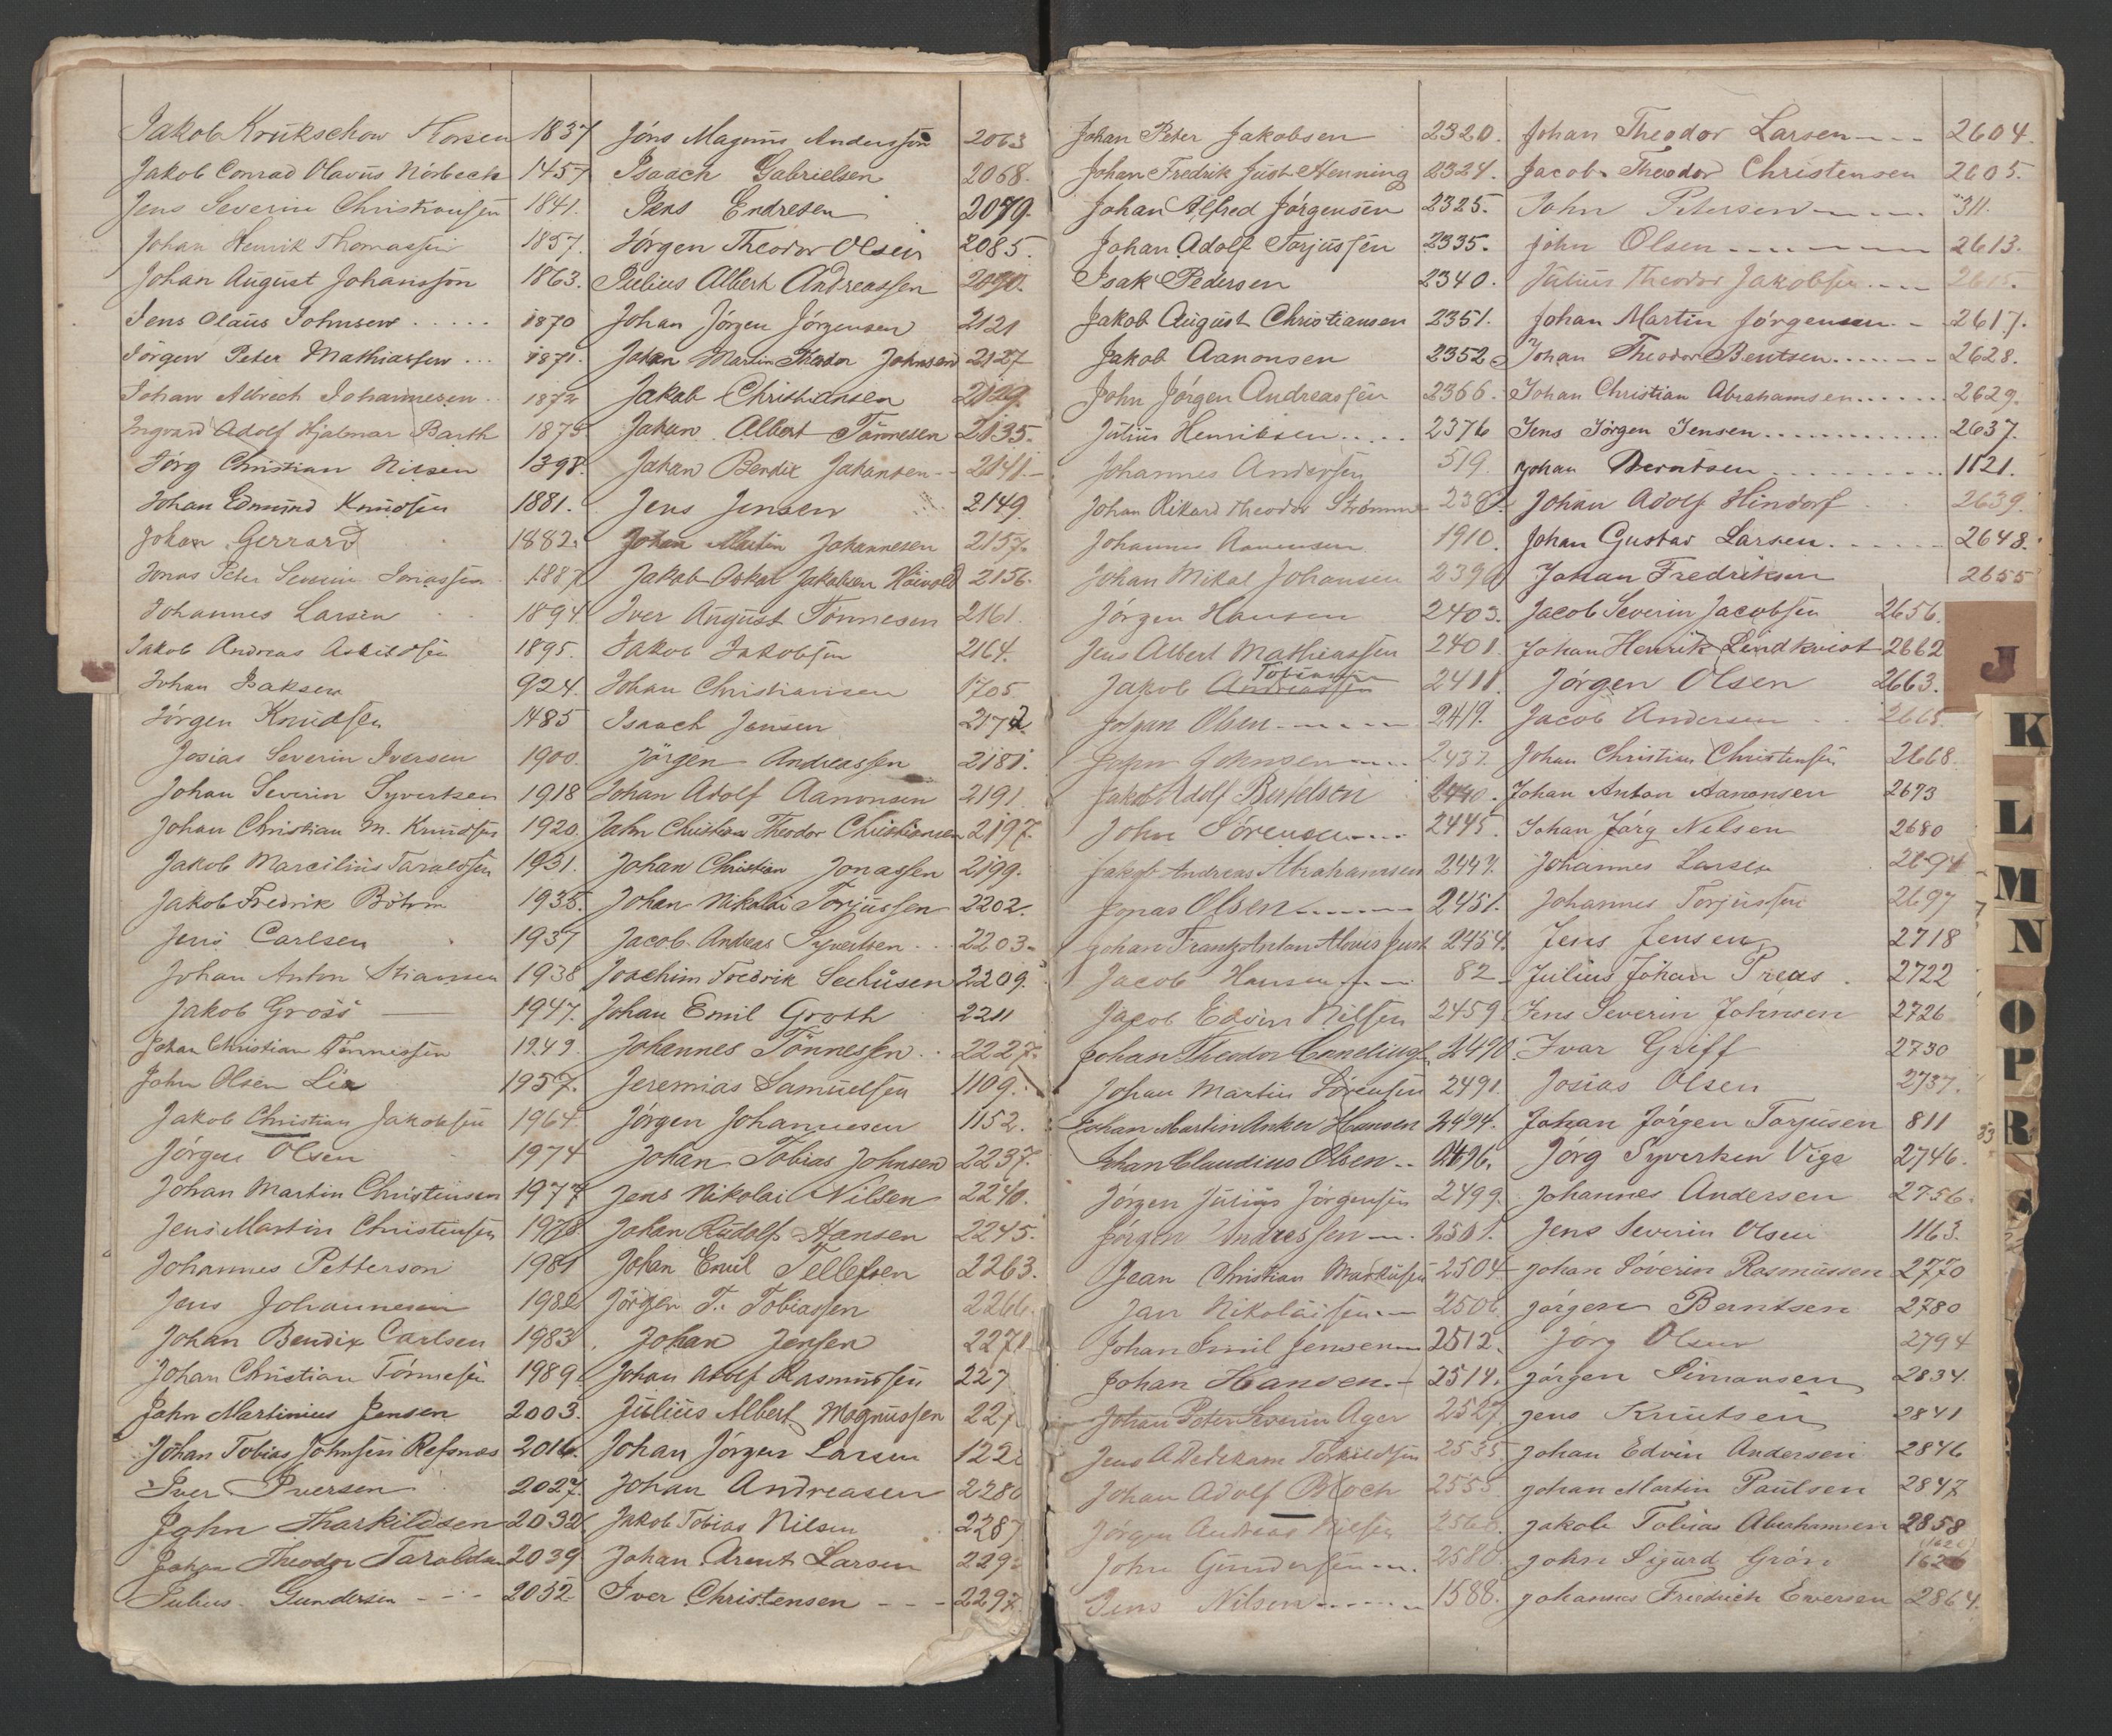 Jakob Krükschow Horsen 1837
Jakob Conrad Olavus Nörbech 1457
Jens Severin Christiansen 1841.
Johan Henrik Thomassen 1857.
Johan August Johansson 1863.
Jens Olaus Johnsen 1870
Jörgen Peter Mathiassen 1871.
Johan Albrech Johannesen 1872
Ingvard Adolf Hjalmar Barth 1875
Jörg Christian Nilsen 1398.
Johan Edmund Knudsen 1881.
Johan Gerrard 1882.
Jonas Peter Severin Jonassen 1887
Johannes Larsen 1894.
Jakob Andreas Askildsen 1895.
Johan Isaksen 924.
Jörgen Knudsen 1485
Josias Severin Iversen 1900.
Johan Severin Syvertsen 1918
Johan Christian M. Knudsen 1920.
Jakob Marcilius Taraldsen 1931.
Jakob Fredrik Böhm 1935.
Jens Carlsen 1937
Johan Anton Stiansen 1938
Jakob Gross 1947.
Johan Christian Tönnessen 1949.
John Olsen Lia 1957.
Jakob Christian Jakobsen 1964.
Jörgen Olsen 1974
Johan Martin Christensen 1977
Jens Martin Christensen 1978
Johannes Petterson 1981
Jens Johannesen 1982
Johan Bendix Carlsen 1983
Johan Christian Tönnesen 1989
John Martinius Jensen 2003.
Johan Tobias Johnsen Refsnes 2016.
Iver Iversen 2027.
John Tharkildsen 2032
Johan Theodor Taraldsen 2039
Julius Gundersen 2052.
Jöns Magnus Andersson 2063
Isaach Gabrielsen 2068.
Jens Endresen 2079.
Jörgen Theodor Olsen 2085.
Julius Albert Andreassen 2090.
Johan Jörgen Jörgensen 2121
Johan Martin Theodor Johnsen 2127
Jakob Christiansen 2129.
Johan Albert Tönnesen 2135.
Johan Bendix Johansen 2141.
Jens Jensen 2149
Johan Martin Johannesen 2157.
Jakob Oskar Jakobsen Höivold 2156.
Iver August Tönnesen 2161.
Jakob Jakobsen 2164.
Johan Christiansen 1705.
Isaach Jensen 2172
Jörgen Andreassen 2181.
Johan Adolf Aanonsen 2191
John Christian Theodor Christiansen 2197.
Johan Christian Jonassen 2199.
Johan Nikolai Torjussen 2202.
Jacob Andreas Syvertsen 2203.
Joachim Fredrik Seehusen 2209.
Johan Emil Groth 2211
Johannes Tönnessen 2227.
Jeremias Samuelsen 1109.
Jörgen Johannesen 1152.
Johan Tobias Johnsen 2237.
Jens Nikolai Nilsen 2240.
Johan Rudolf Hansen 2245.
Johan Emil Tellefsen 2263.
Jörgen T. Tobiassen 2266.
Johan Jensen 2271
Johan Adolf Rasmussen 227
Julius Albert Magnussen 227
Johan Jörgen Larsen 122
Johan Andreasen 2280
Jakob Tobias Nilsen 2287
Johan Arent Larsen 229
Iver Christensen 2297
Johan Peter Jakobsen 2320.
Johan Fredrik Just Henning 2324.
Johan Alfred Jörgensen 2325.
Johan Adolf Torjussen 2335.
Isak Pedersen 2340.
Jakob August Christiansen 2351.
Jakob Aanonsen 2352
John Jörgen Andreassen 2366.
Julius Henriksen 2376
Johannes Andersen 519.
Johan Rikard Theodor Strömme 238
Johannes Aanensen 1910.
Johan Mikal Johansen 2396
Jörgen Hansen 2403.
Jens Albert Mathiassen 2401.
Jakob Andreassen Tobiassen 2411
Johan Olsen 2419.
John Johnsen 2437.
Jakob Adolf Bertelsen 2440.
John Sörensen 2445.
Jakob Andreas Abrahamsen 2447.
Jonas Olsen 2451.
Johan Frantz Anton Alovis Just 2454.
Jacob Hansen 82
Jacob Edvin Nilsen 2459
Johan Theodor 2490
Johan Martin Sörensen 2491.
Johan Martin Anker Hansen 2494.
Johan Claudius Olsen 2496.
Jörgen Julius Jörgensen 2499.
Jörgen Andressen 2501.
Jean Christian Markusen 2504
Jan Nikolaisen 2506
Johan Emil Jensen 2512.
Johan Hansen 2514.
Johan Peter Severin Ager 2527.
Jens A Torkildsen 2535
Johan Adolf Bloch 2555
Jörgen Andreas Nilsen 2568.
John Gundersen 2580.
Jens Nilsen 1588.
Johan Theodor Larsen 2604.
Jacob Theodor Christensen 2605.
John Petersen 311.
John Olsen 2613.
Julius Theodor Jakobsen 2615.
Johan Martin Jörgensen 2617.
Johan Theodor Bentsen 2628.
Johan Christian Abrahamsen 2629.
Jens Jörgen Jensen 2637.
Johan Berntsen 1121.
Johan Adolf Hindorf 2639.
Johan Gustav Larsen 2648.
Johan Fredriksen 2655
Jacob Severin Jacobsen 2656.
Johan Henrik Lindkvist 2662
Jörgen Olsen 2663.
Jacob Andersen 2665.
Johan Christian Christensen 2668.
Johan Anton Aanonsen 2673
Johan Jörg Nilsen 2680
Johannes Larsen 2694
Johannes Torjussen 2697
Jens Jensen 2718
Julius Johan Preus 2722
Jens Severin Johnsen 2726
Ivar Griff 2730
Josias Olsen 2737.
Johan Jörgen Torjusen 811
Jörg Syvertsen Vige 2746.
Johannes Andersen 2756.
Jens Severin Olsen 1163.
Johan Söverin Rasmussen 2770
Jörgen Berntsen 2780
Jörg Olsen 2794
Jörgen Simonsen 2834.
Jens Knutsen 2841
Johan Edvin Andersen 2846
Johan Martin Paulsen 2847
Jakob Tobias Abrahamsen 2858
John Sigurd Grön 1626 (1626)
Johannes Friedrich Eversen 2864.
J
K
L
M
N
O
P
R
S